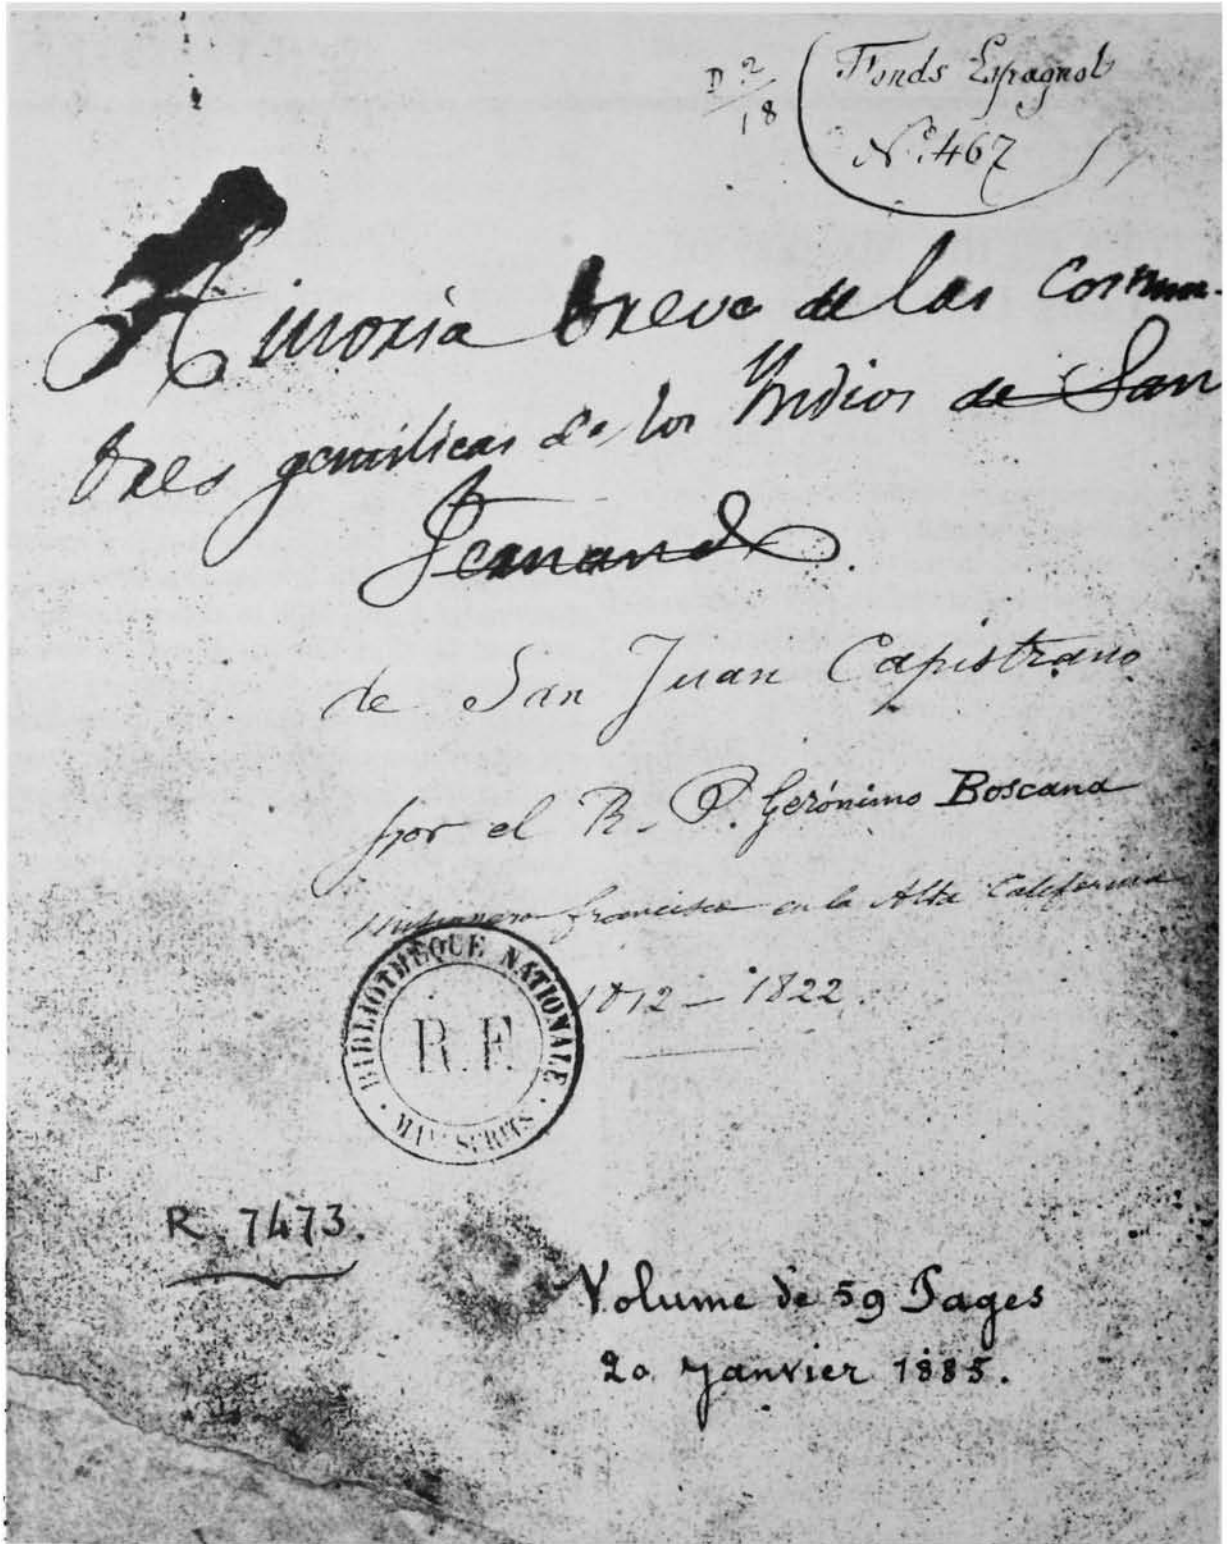 D 2/18
Fonds Espagnol
Nº 467
Himoria breve de las Costum-
bres gentilicas de los Yndios de San
Fernando.
de San Juan Capistrano
por el R. P. Gerónimo Boscana
Misionero francisco en la Alta California
1812 – 1822.
BIBLIOTHÈQUE NATIONALE
R.F.
MANUSCRITS
R. 7473.
Volume de 59 Pages
20 Janvier 1885.